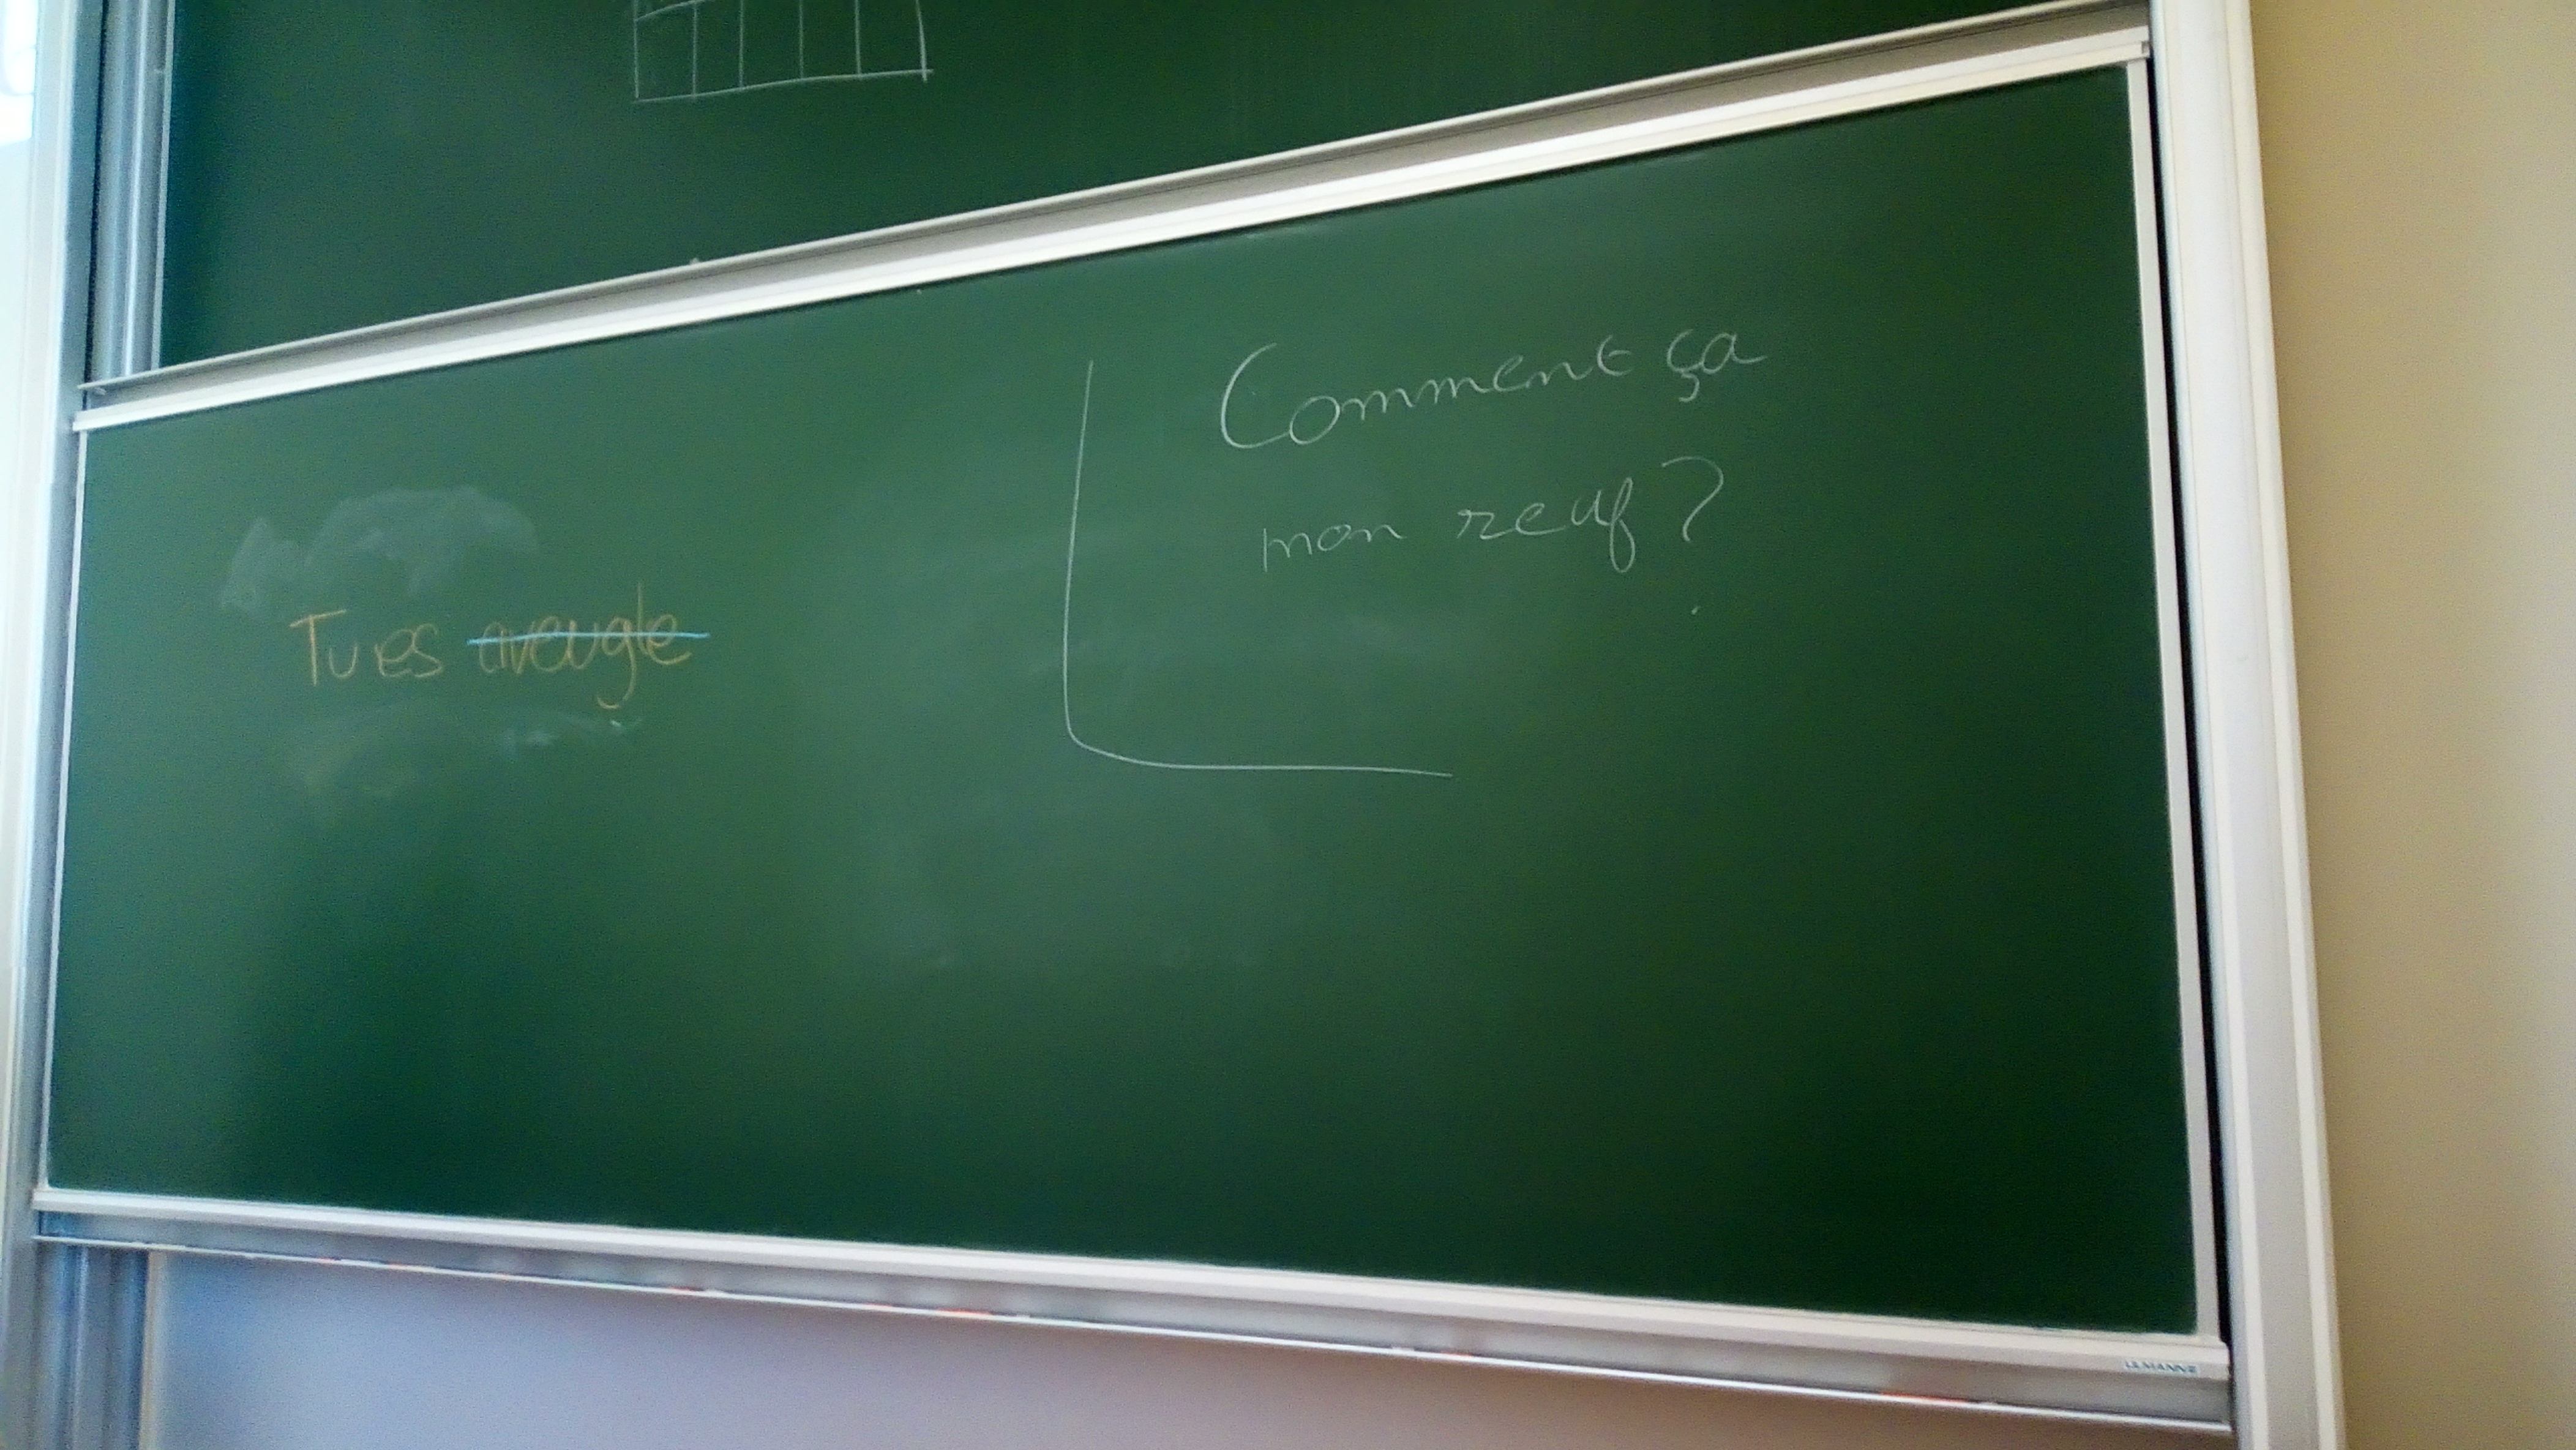 Tu es aveugle
Comment ça
mon reuf ?
ULMANN